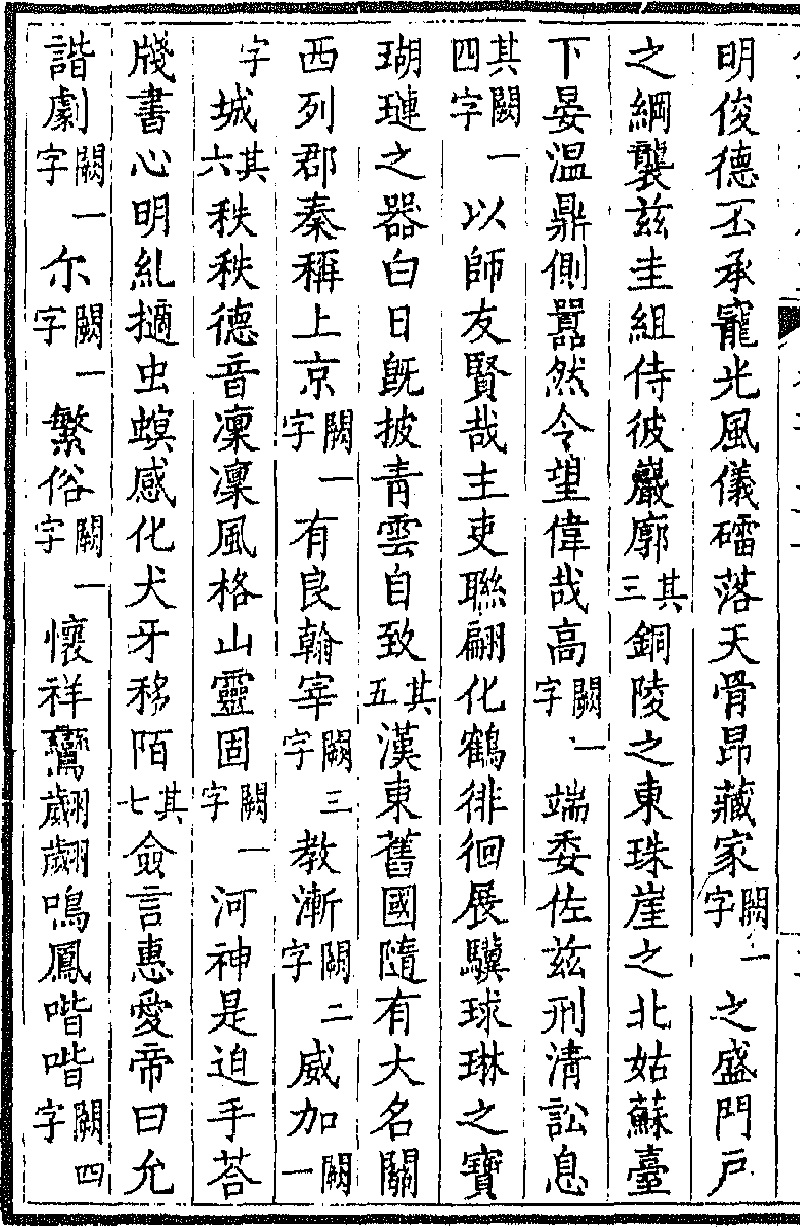 明俊德丕承寵光風儀礌落天骨昂藏家闕一字之盛門戶
之綱襲茲圭組侍彼巖廓其三銅陵之東珠崖之北姑蘇臺
下晏溫鼎側嚻然令望偉哉高闕一字端委佐茲刑清訟息
其四闕一字以師友賢哉主吏聯翩化鶴徘徊展驥球琳之寶
瑚璉之器白日旣披青雲自致其五漢東舊國隨有大名關
西列郡秦稱上京闕一字有良翰宰闕三字教漸闕二字威加闕一
字城其六秩秩德音凜凜風格山靈固闕一字河神是迫手荅
牋書心明糺擿虫螟感化犬牙移陌其七僉言惠愛帝曰允
諧劇闕一字尒闕一字繁俗闕一字懷祥鸞翽翽鳴鳳喈喈闕四字